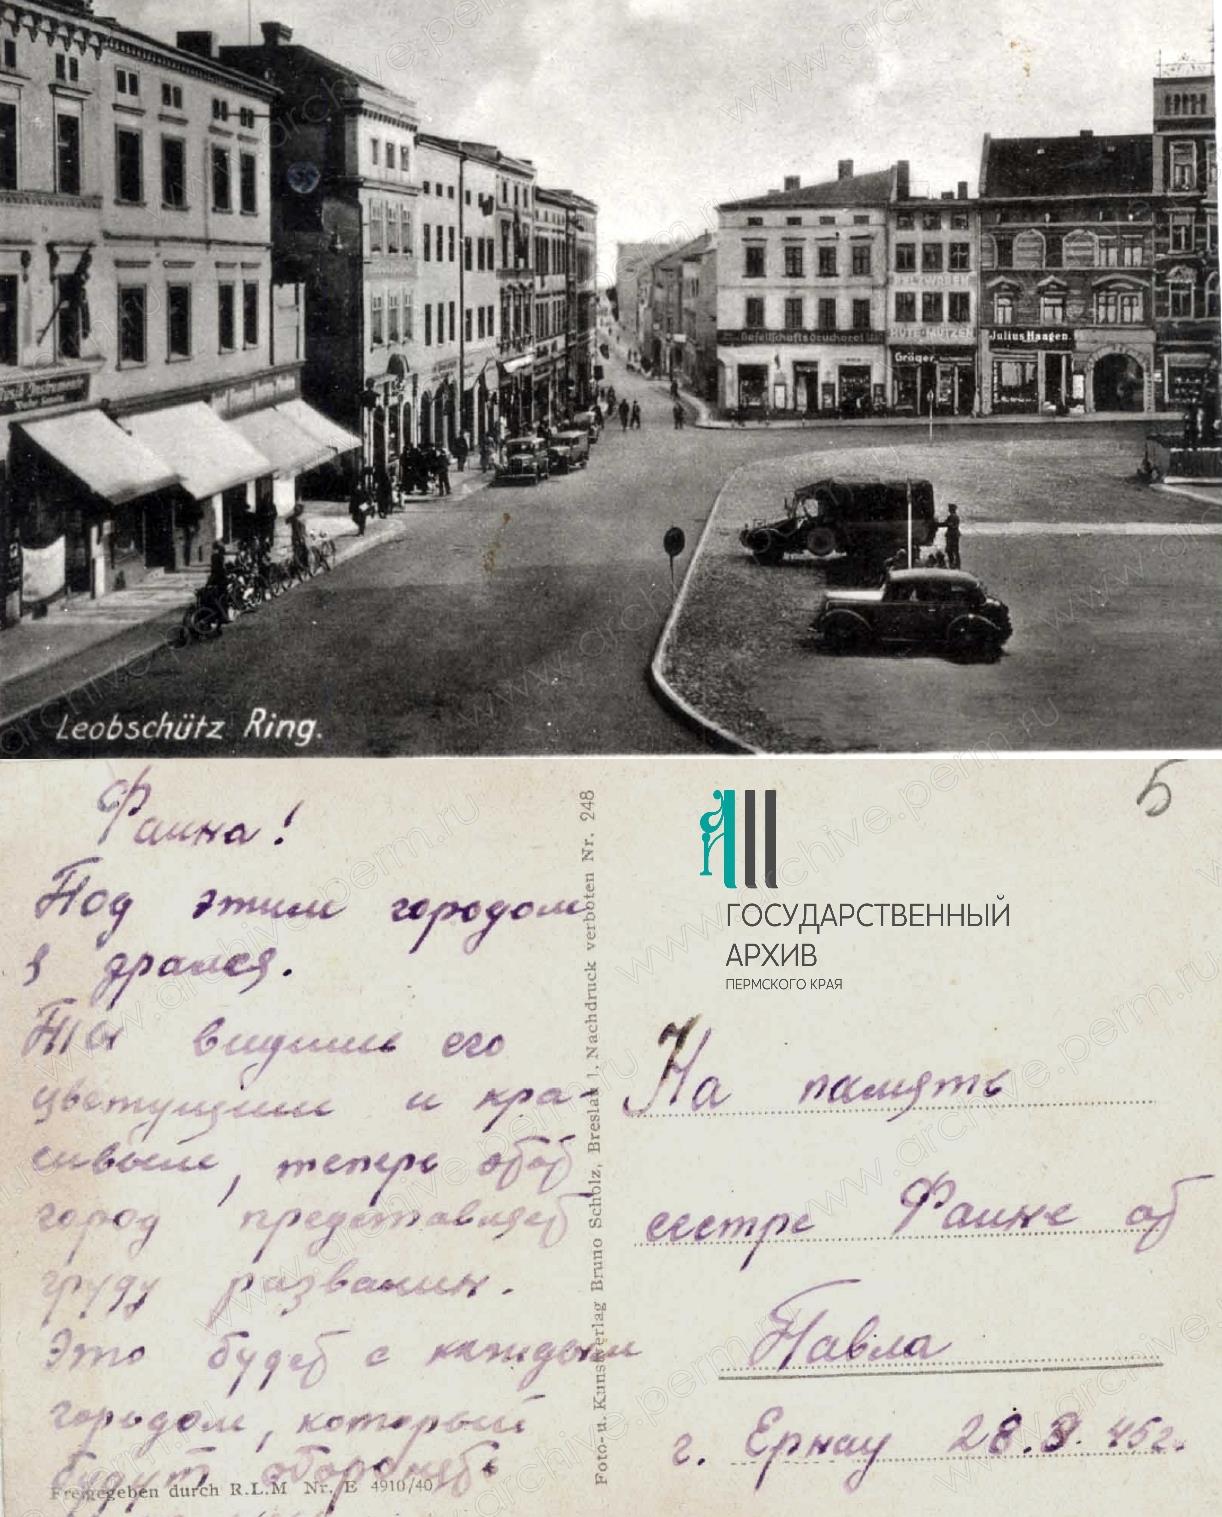 Musik-Instrumente
Gesellschaftsdruckerei
PELZWAREN
HÜTE-MÜTZEN
Gröger
Julius Haagen
Leobschütz Ring.
5
ГОСУДАРСТВЕННЫЙ
АРХИВ
ПЕРМСКОГО КРАЯ
Фаина!
Под этим городом
я дрался.
Ты видишь его
цветущим и кра-
сивым, теперь этот
город представляет
груду развалин.
Это будет с каждым
городом, который
будут оборонять
Freigegeben durch R.L.M Nr. E 4910/40
Foto- u. Kunstverlag Bruno Scholz, Breslau 1. Nachdruck verboten Nr. 248
На память
сестре Фаине от
Павла
г. Ернау 28.3.45г.
www.archive.perm.ru